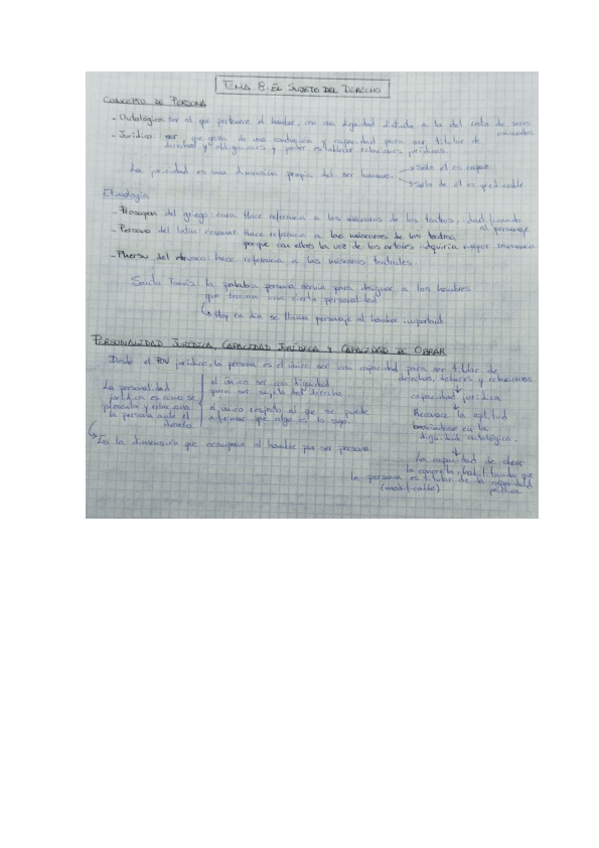 TEMA 8. EL SUJETO DEL DERECHO
CONCEPTO DE PERSONA
- Ontológico: ser al que pertenece el hombre, con una dignidad distinta a la del resto de seres
- Jurídico: ser que goza de una condición y capacidad para ser titular de
derechos y obligaciones y poder establecer relaciones jurídicas.
La juridicidad es una dimensión propia del ser humano. → Solo él es capaz
→ Solo de él es predicable
Etimología:
- Prosopon del griego: cara. Hace referencia a las máscaras de los teatros,
al personaje
- Persona del latín: resonar. Hace referencia a las máscaras de los teatros
porque con ellas la voz de los actores adquiría mayor
- Phersu del etrusco: hace referencia a las máscaras teatrales.
Santo Tomás: la palabra persona servía para designar a los hombres
que tenían una cierta personalidad
↳ Hoy en día se llama personaje al hombre importante
PERSONALIDAD JURÍDICA, CAPACIDAD JURÍDICA Y CAPACIDAD DE OBRAR
Desde el PDV jurídico, la persona es el único ser con capacidad para ser titular de
derechos, deberes y relaciones
La personalidad
jurídica es como se
presenta y relaciona
la persona ante el
derecho
el único ser con dignidad
para ser sujeto del derecho
el único respecto al que se puede
afirmar que algo es lo suyo.
↳ Es la dimensión que acompaña al hombre por ser persona
capacidad jurídica
Reconoce la aptitud
basándose en la
dignidad ontológica.
La capacidad de obrar
la concreta, habilitando que
la persona es titular de la capacidad
(modificable)